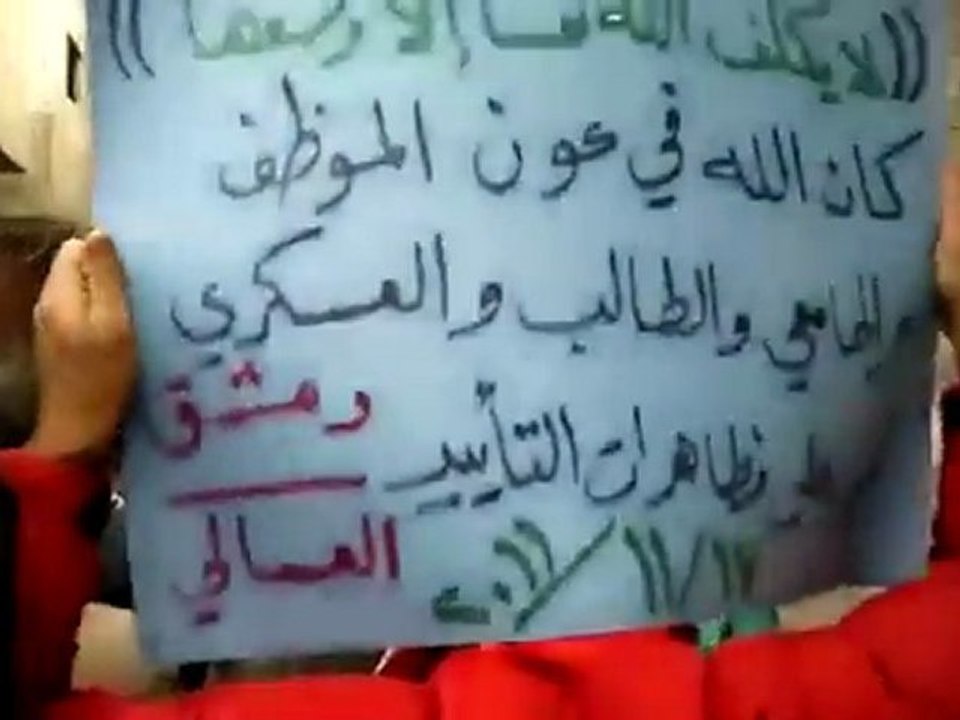 ((لا يكلف الله نفسا إلا وسعها))
كان الله في عون الموظف
والجامعي والطالب والعسكري
تظاهرات التأييد
دمشق
العسالي
٢٠١١/١١/١٣